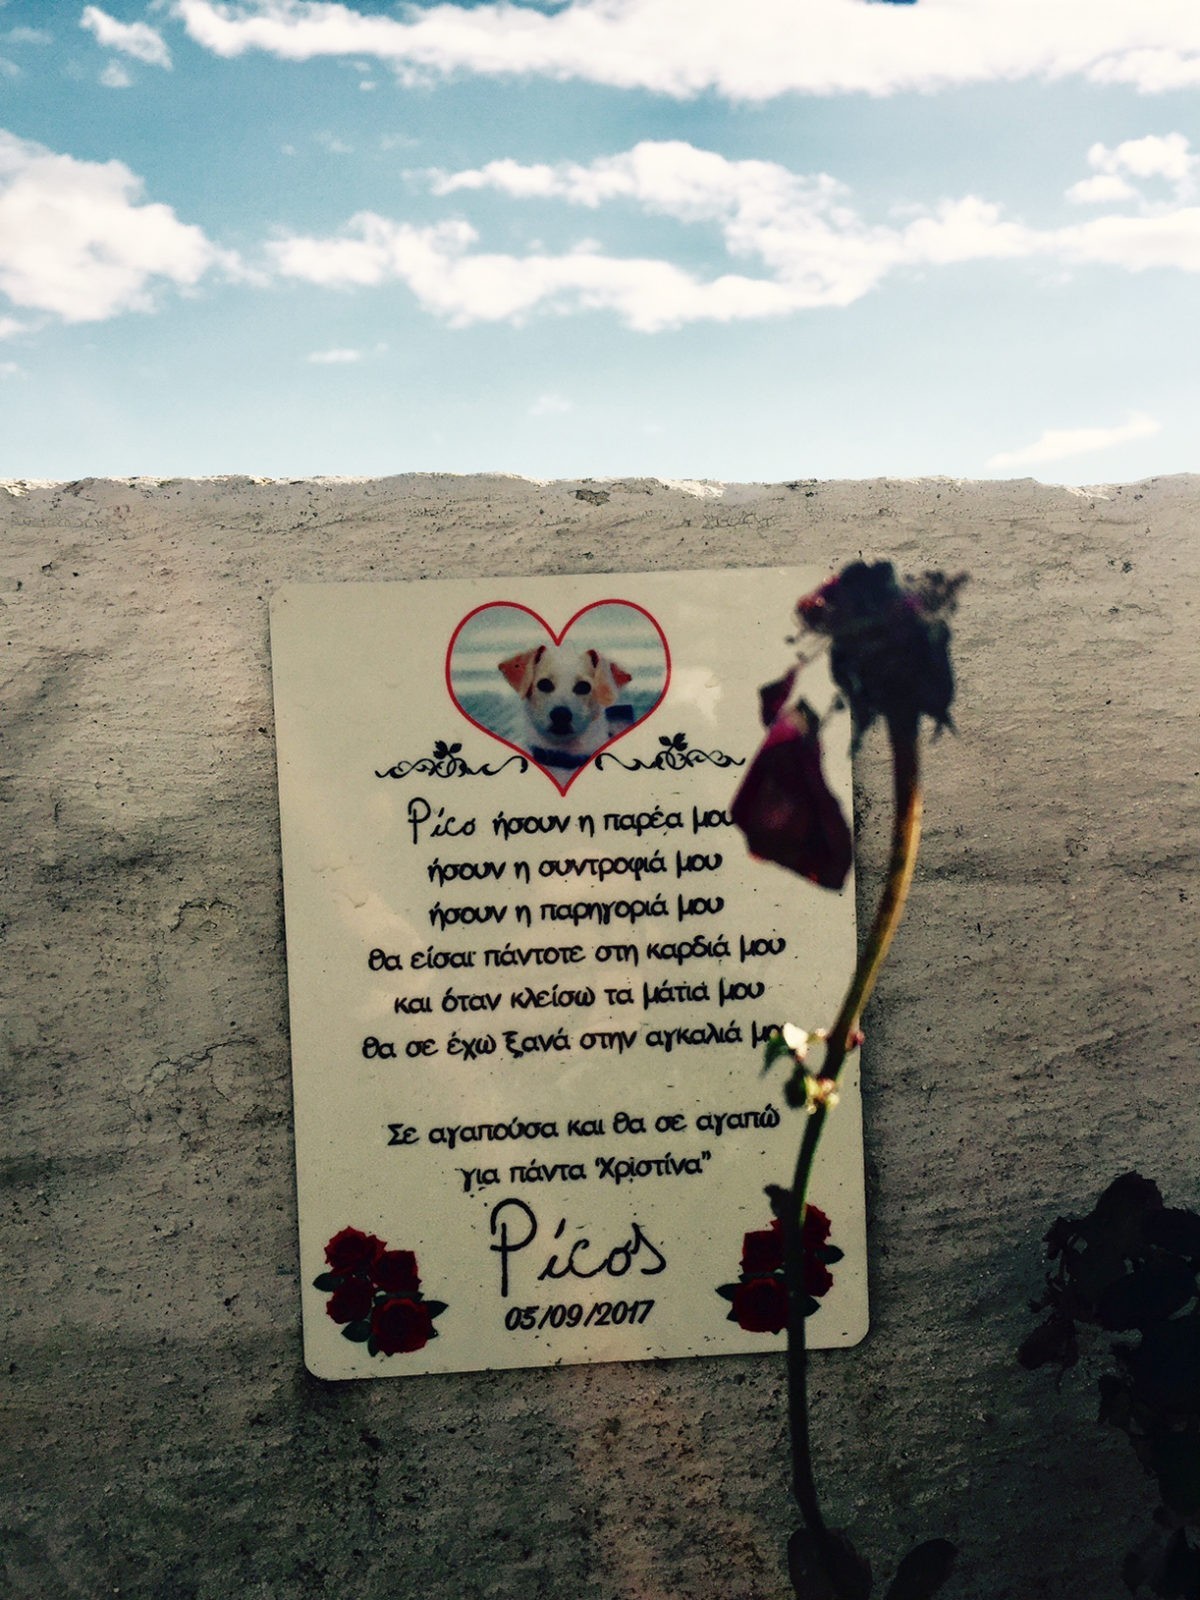 Pίco ήσουν η παρέα μου
ήσουν η συντροφιά μου
ήσουν η παρηγοριά μου
θα είσαι πάντοτε στη καρδιά μου
και όταν κλείσω τα μάτια μου
θα σε έχω ξανά στην αγκαλιά μου
Σε αγαπούσα και θα σε αγαπώ
για πάντα "Χριστίνα"
Pίcos
05/09/2017